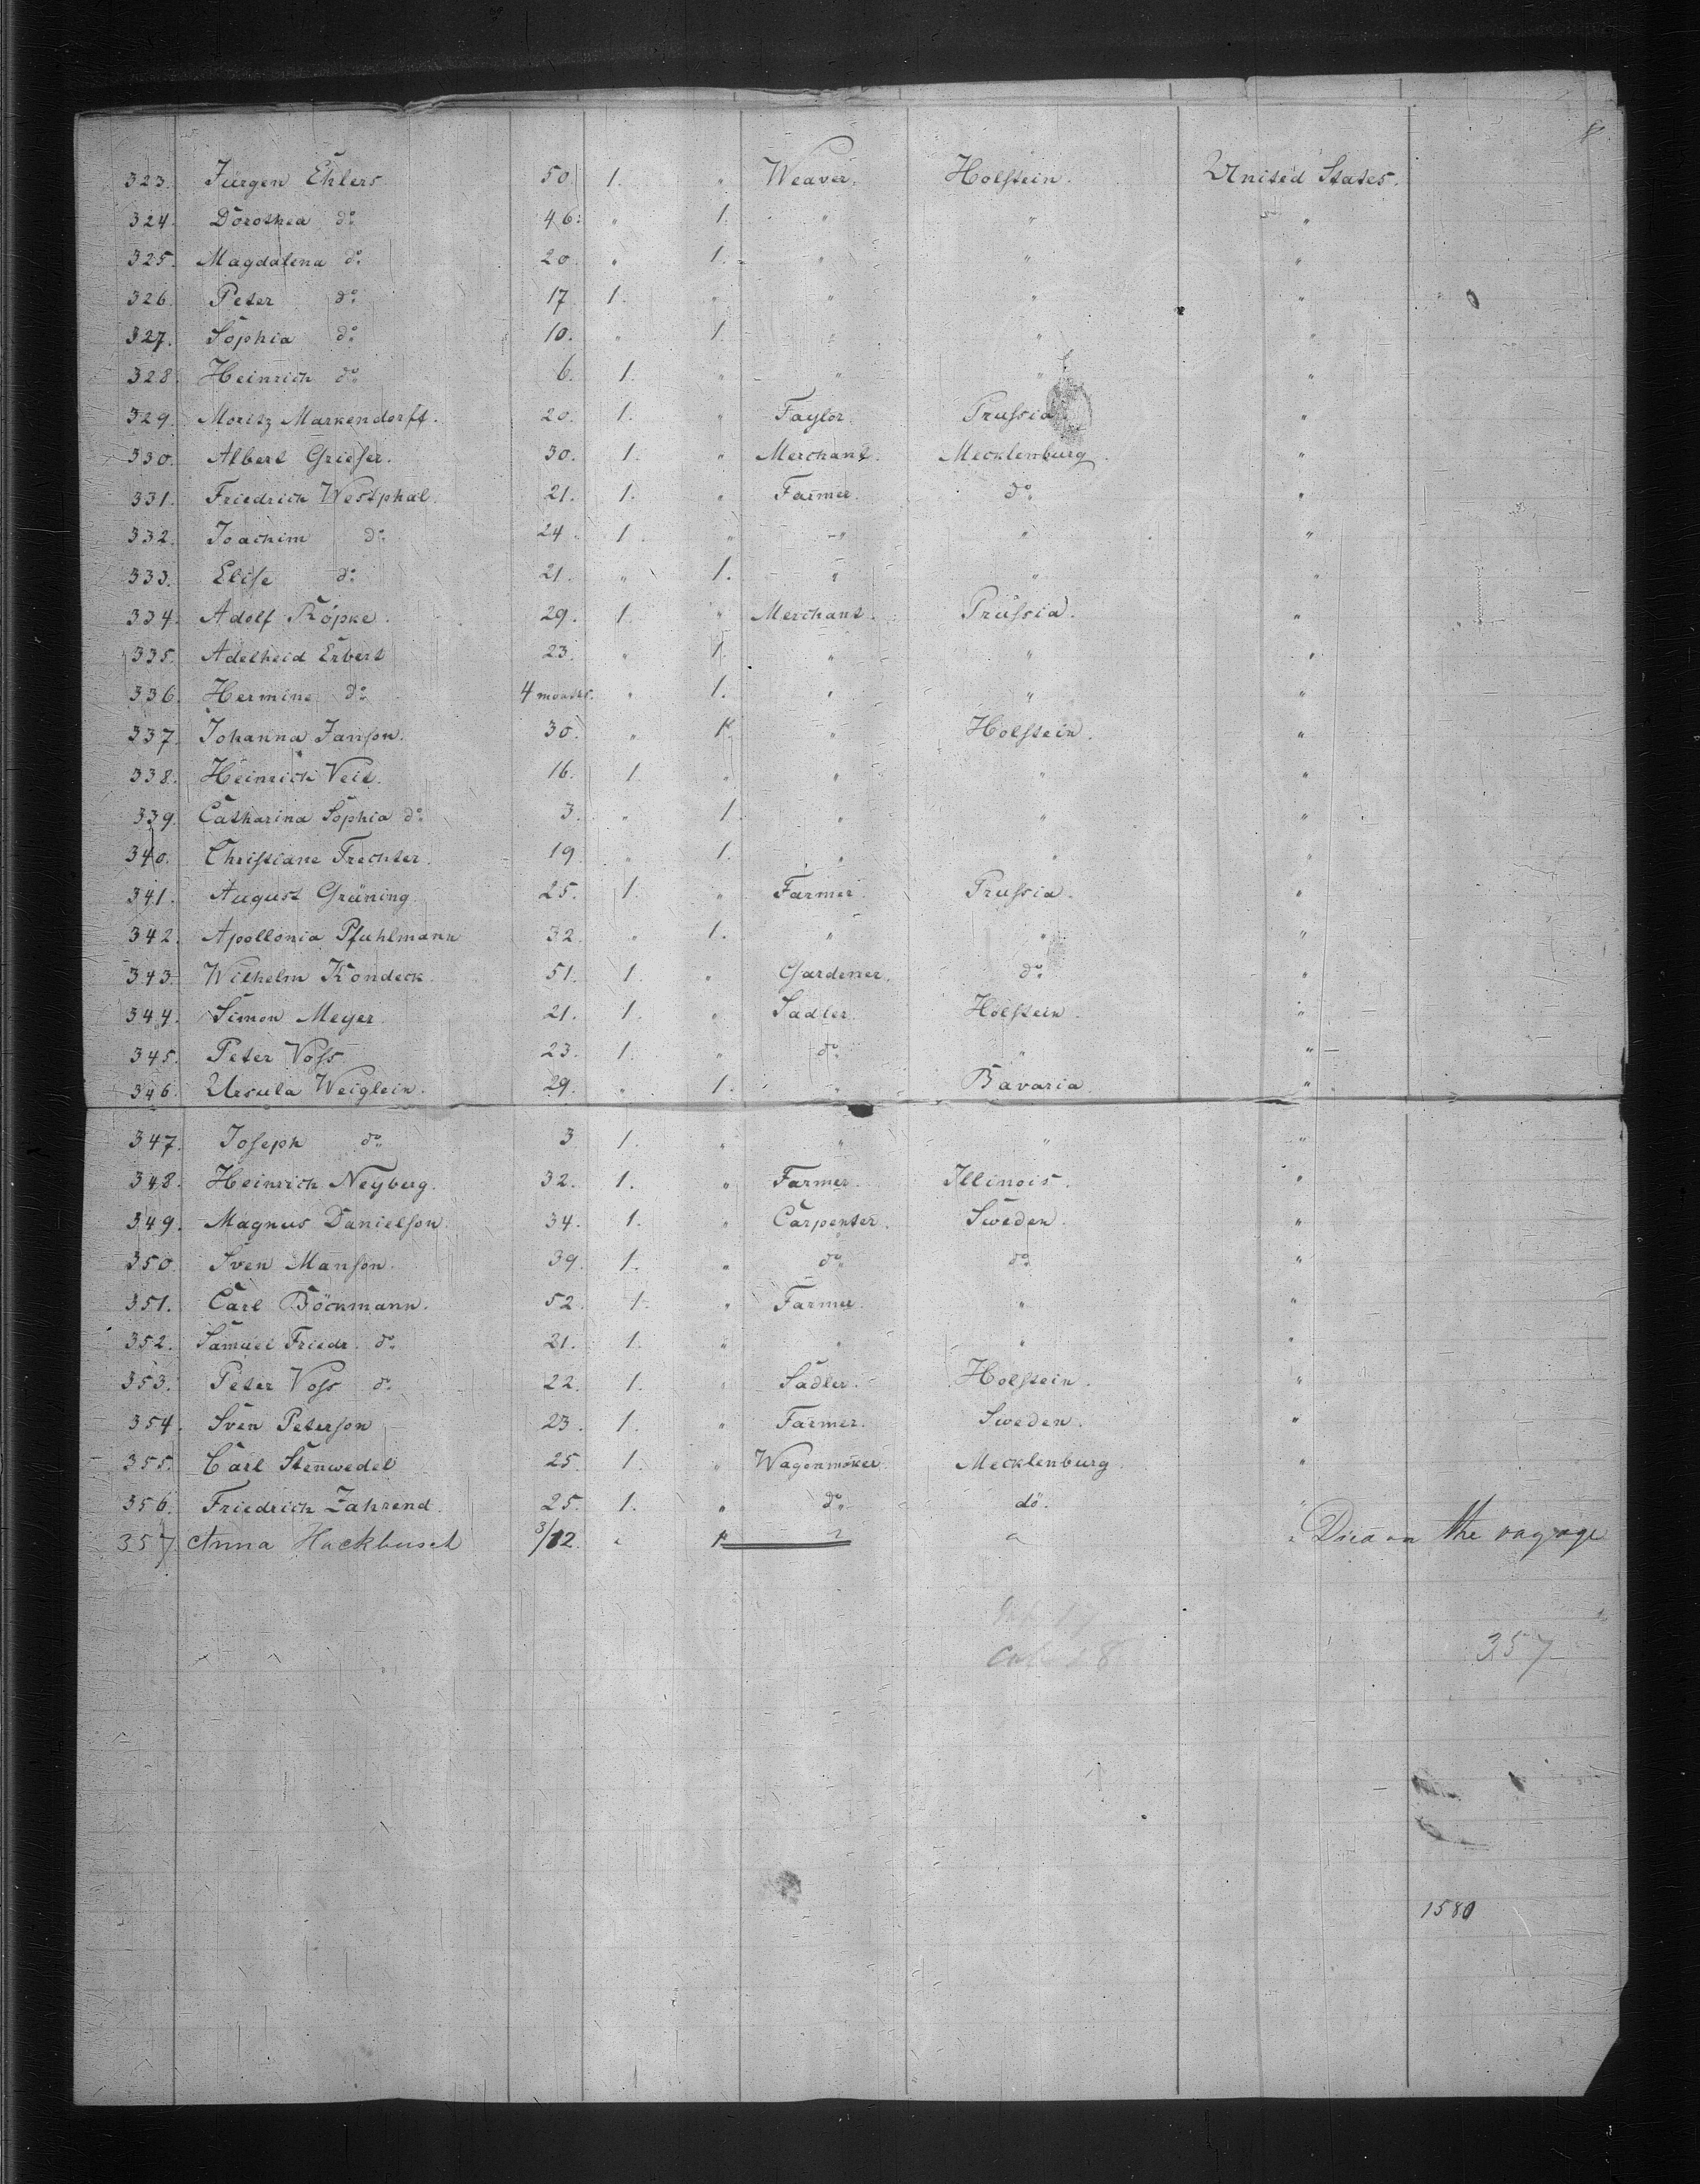 323. Jürgen Ehlers 50 1. " Weaver. Holstein. United States.
324. Dorothea do. 46. " 1. " " "
325. Magdalena do. 20. " 1. " " "
326. Peter do. 17 1. " " " "
327. Sophia do. 10. " 1. " " "
328. Heinrich do. 6. 1. " " " "
329. Moritz Markendorff. 20. 1. " Taylor. Prussia "
330. Albert Grieser. 30. 1. " Merchant. Mecklenburg. "
331. Friedrich Westphal. 21. 1. " Farmer. do. "
332. Joachim do. 24 1. " " " "
333. Elise do. 21. " 1. " " "
334. Adolf Röpke. 29. 1. " Merchant. Prussia. "
335. Adelheid Erbert 23. " 1. " " "
336. Hermine do. 4 months. " 1. " " "
337. Johanna Janson. 30. " 1. " Holstein. "
338. Heinrich Veit. 16. 1. " " " "
339. Catharina Sophia do. 3. " 1. " " "
340. Christiane Trechter. 19 " 1. " " "
341. August Grüning. 25. 1. " Farmer Prussia. "
342. Apollonia Pfuhlmann 32. " 1. " " "
343. Wilhelm Kondeck. 51. 1. " Gardener. do. "
344. Simon Meyer. 21. 1. " Sadler. Holstein. "
345. Peter Voss 23. 1. " do. " "
346. Ursula Weiglein. 29. " 1. " Bavaria "
347. Joseph do. 3 1. " " " "
348. Heinrich Neyburg. 32. 1. " Farmer. Illinois. "
349. Magnus Danielson. 34. 1. " Carpenter. Sweden. "
350. Sven Manson. 39. 1. " do. do. "
351. Carl Böckmann. 52. 1. " Farmer. " "
352. Samuel Friedr. do. 21. 1. " " " "
353. Peter Voss do. 22. 1. " Sadler. Holstein. "
354. Sven Peterson 23. 1. " Farmer. Sweden. "
355. Carl Stenwedel 25. 1. " Wagenmaker. Mecklenburg. "
356. Friedrich Zahrend. 25. 1. " do. do. "
357 Anna Hackbusch 3/12. " 1 " " " Died on the voyage
357
1580